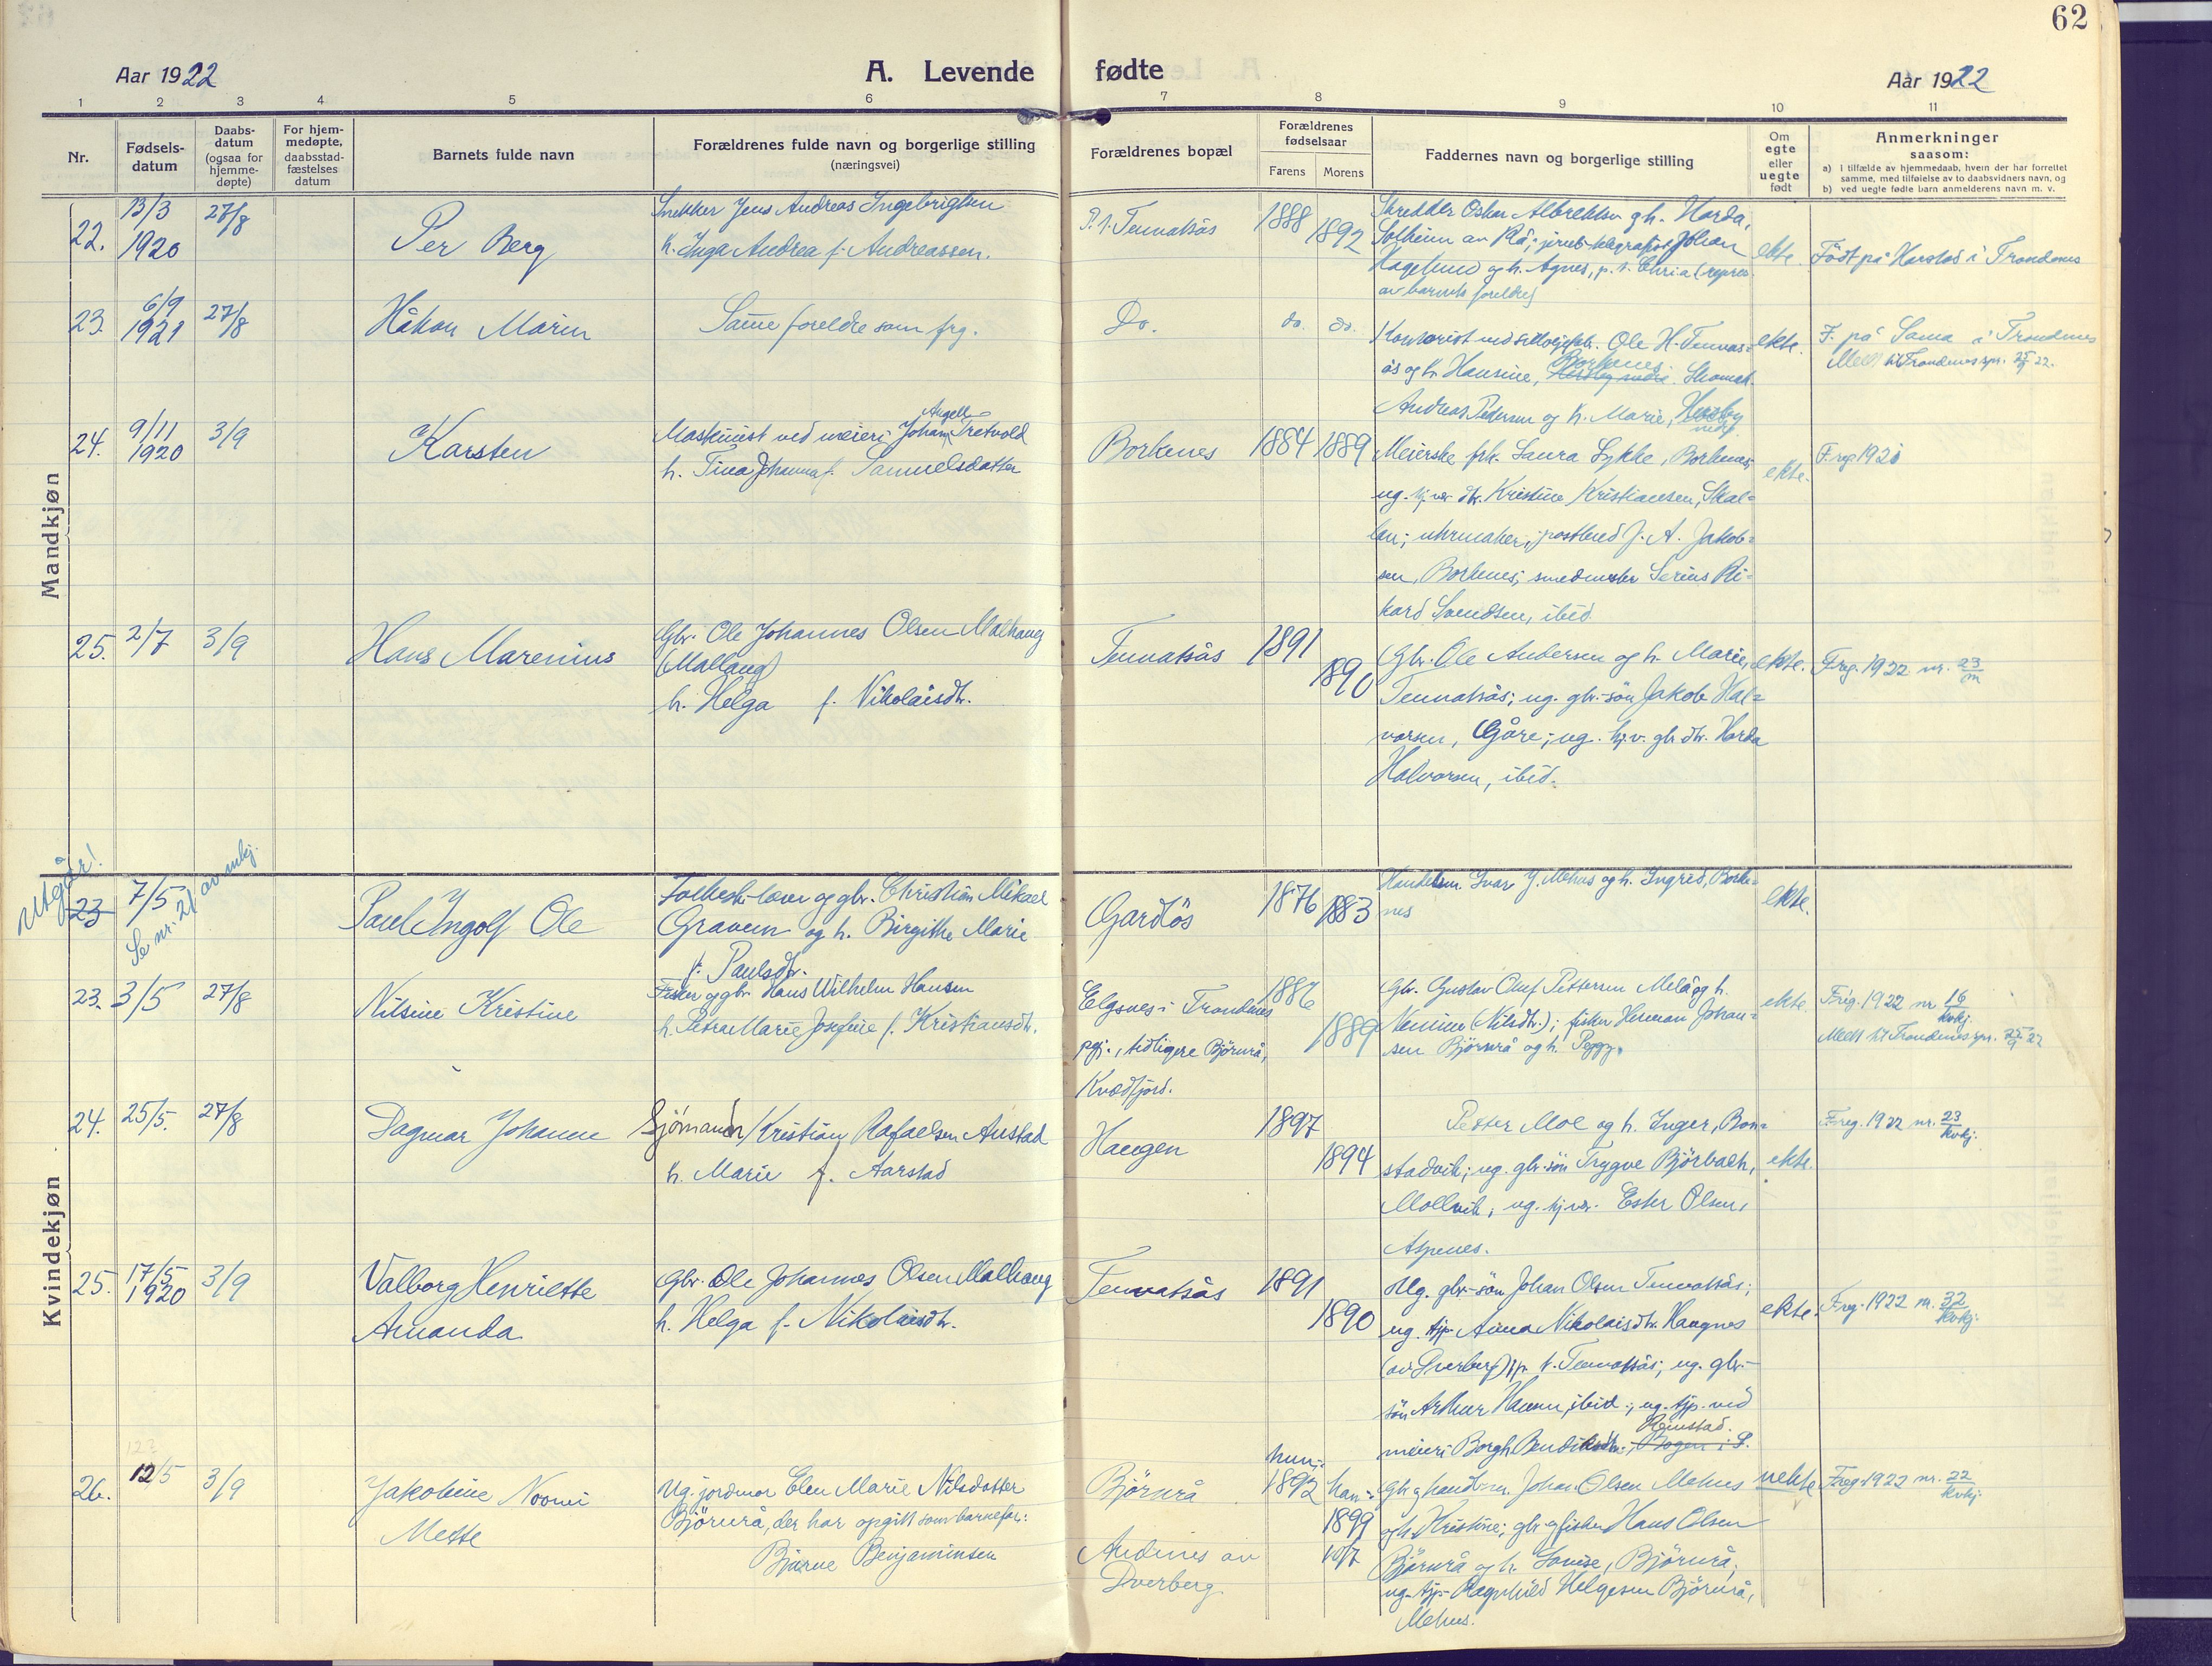 62
Aar 1922
A. Levende fødte
Aar 1922
1 2 3 4 5 6 7 8 9 10 11
Nr.
Fødsels-
datum
Daabs-
datum
(ogsaa for
hjemme-
døpte)
For hjem-
medøpte,
daabsstad-
fæstelses
datum
Barnets fulde navn
Forældrenes fulde navn og borgerlige stilling
(næringsvei)
Forældrenes bopæl
Forældrenes
fødselsaar
Farens Morens
Faddernes navn og borgerlige stilling
Om
egte
eller
uegte
født
Anmerkninger
saasom:
a) i tilfælde av hjemmedaab, hvem der har forrettet
samme, med tilføielse av to daabsvidners navn, og
b) ved uegte fødte barn anmelderens navn m. v.
Mandkjøn
22.
13/3
1920
27/8
Per Berg
Snekker Jens Andreas Ingebrigtsen
h. Inga Andrea f. Andreassen.
P. t. Tennatsås
1888
1892
Skredder Oskar Albrektsen og h. Horda,
Solheim av Rå; jernb.telegrafist Johan
Hagelund og h. Agnes, p. t. Chria (repres.
av barnets foreldre)
ekte.
Født på Harstad i Trondenes
23.
6/9
1921
27/8
Håkon Marin
Samme foreldre som frg.
Do.
do. do.
Kontorist ved Ole H. Tennas=
ås og h. Hansine, Borkenes. Skomak.
Andreas Pedersen og h. Marie, Husby
nedr.
ekte.
F. på Sama i Trondenes
Meldt til Trondenes spr. 25/9 22.
24.
9/11
1920
3/9
Karsten
Maskinist ved meieri Johan Angell Tretvold
h. Tina Johanna f. Samuelsdatter
Borkenes
1884 1889
Meierske frk. Laura Lykke, Borkenes;
ug. hj.v. dtr. Kristine Kristiansen, Skal=
lan; uhrmaker, postbud J. A. Jakob=
sen, Borkenes; smedmester Serius Ri=
kard Svendsen, ibid.
ekte.
Freg 1920
25.
2/7
3/9
Hans Marenius
Gbr. Ole Johannes Olsen Malhaug
(Mallaug)
h. Helga f. Nikolaisdtr.
Tennatsås
1891
1890
Gbr. Ole Andersen og h. Marie,
Tennatsås; ug. gbr.-søn Jakob Hal=
vorsen, Gåre; ug. hj.v. gbr. dtr. Horda
Halvorsen, ibid.
ekte.
Freg. 1922 nr. 23/m
Kvindekjøn
Utgår!
23
7/5
Se nr. 21 av mkj.
Paul Ingolf Ole
Folkesk.lærer og gbr. Christian Mikael
Gravem og h. Birgithe Marie
f. Paulsdtr.
Gardløs
1876
1883
Handelsm. Ivar J. Mehus og h. Ingrid, Borke=
nes
ekte.
23.
3/5
27/8
Nilsine Kristine
Fisker og gbr. Hans Wilhelm Hansen
h. Petra Marie Josefine f. Kristiansdtr.
Elgsnes i Trondenes
pgj., tidligere Björnrå,
Kvædfjord.
1886
1889
Gbr. Gustav Oluf Pettersen Melå og h.
Nennine (Nilsdtr.); fisker Herman Johan=
sen Björnrå og h. Peggy.
ekte.
Freg. 1922 nr. 16/kvkj.
Meldt til Trondenes spr. 25/9 22
24.
25/5.
27/8
Dagmar Johanne
Sjømand Kristian Rafaelsen Austad
h. Marie f. Aarstad
Haugen
1897
1894
Petter Moe og h. Inger, Bon=
stadvik; ug. gbr.-søn Trygve Björbæch,
Mollvik, ug. hj.v. Ester Olsen,
Aspenes.
ekte.
Freg. 1922 nr. 23/kvkj.
25.
17/5
1920
3/9
Valborg Henriette
Amanda
Gbr. Ole Johannes Olsen Malhaug
h. Helga f. Nikolaisdtr.
Tennatsås
1891
1890
Ug. gbr-søn Johan Olsen Tennatsås;
ug. tjp. Anna Nikolaisdtr. Haugnes
(av Dverberg) p. t. Tennatsås; ug. gbr.-
søn Arthur Hansen, ibid.; ug. tjp. ved
meieri Borgh. Bendiksdtr., Bogen i S.
Reinstad.
ekte.
Freg. 1922 nr. 32/kvkj.
26.
12/5
3/9
Jakobine Noomi
Mette
Ug. jordmor Elen Marie Nilsdatter
Björnrå, der har opgitt som barnefar:
Bjarne Benjaminsen
Björnrå
Andenes av
Dverberg
hun:
1892
han:
1899
10/7
Gbr. og handelsm. Johan Olsen Mehus
og h. Kristine; gbr. og fisker Hans Olsen
Björnrå og h. Lovise, Björnrå,
ug. tjp. Ragnhild Helgesen Björnrå,
Mehus.
uekte
Freg. 1922 nr. 22/kvkj